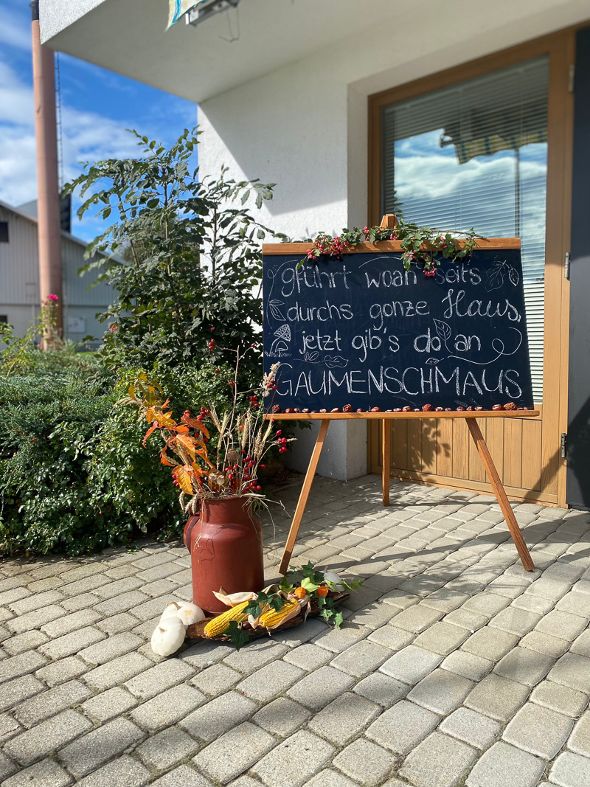 gführt woan seits
durchs gonze Haus,
jetzt gib's do an
GAUMENSCHMAUS